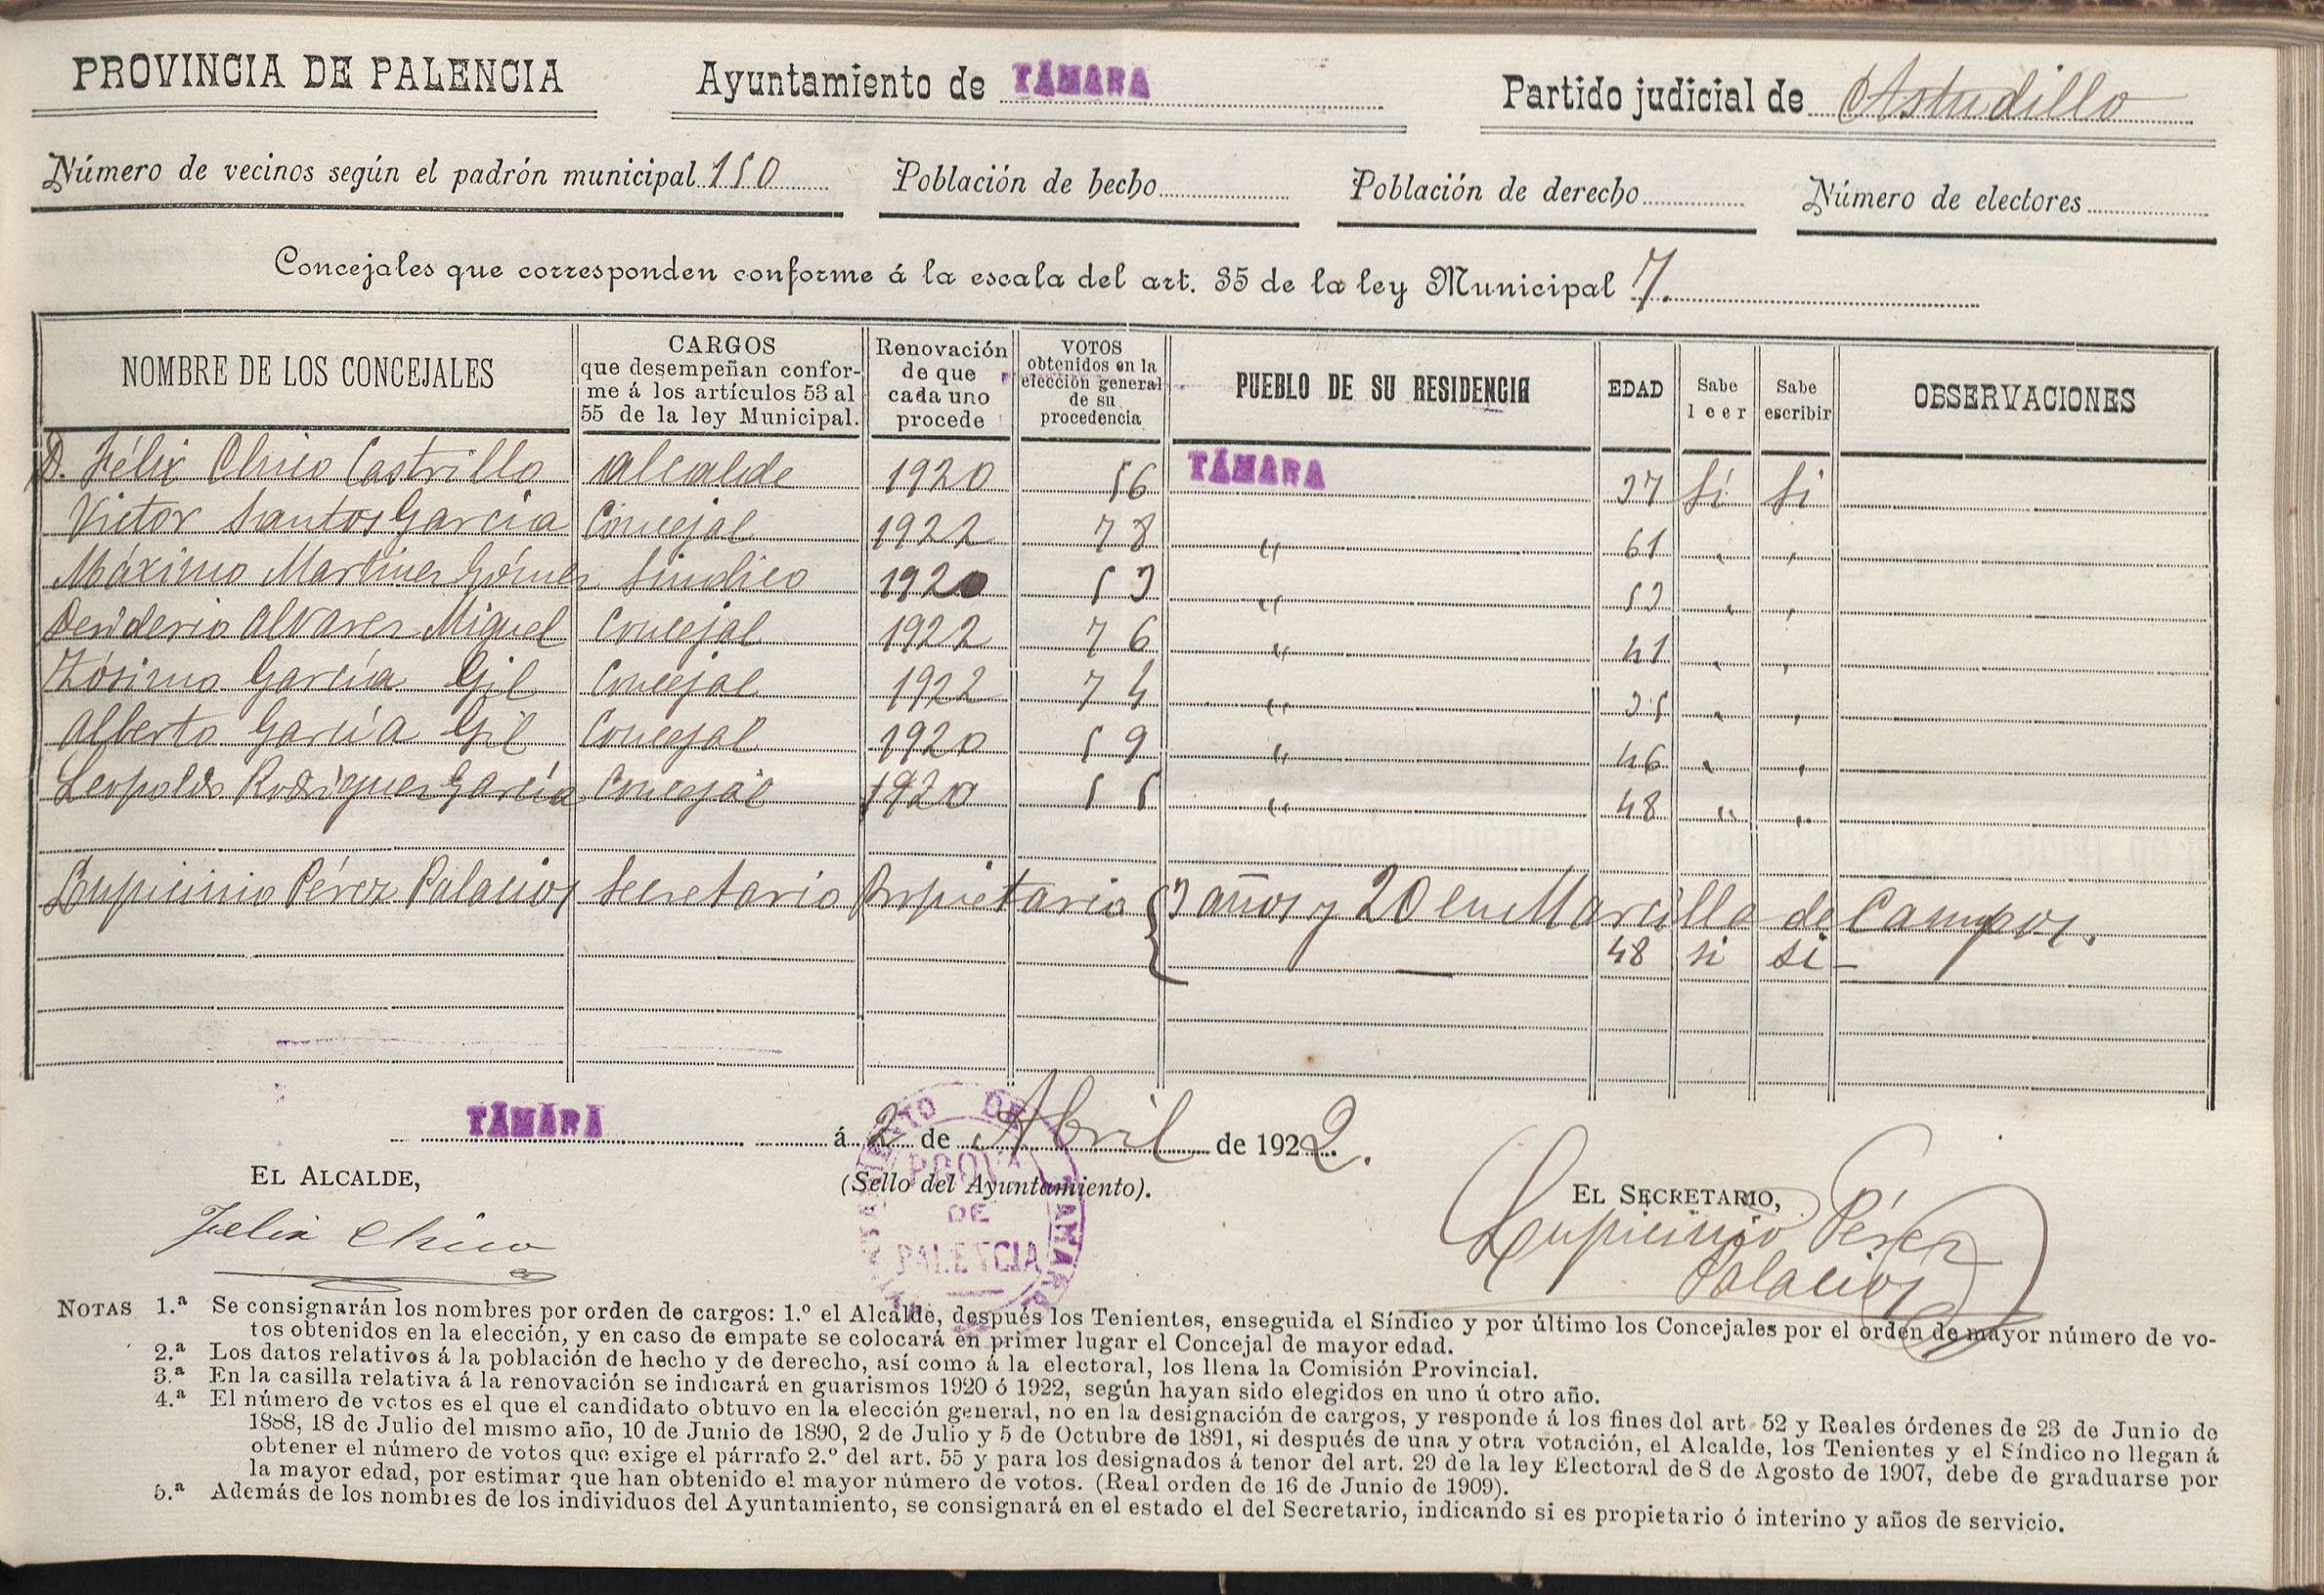 PROVINCIA DE PALENCIA Ayuntamiento de TÁMARA Partido judicial de Astudillo
Número de vecinos según el padrón municipal 150 Población de hecho Población de derecho Número de electores
Concejales que corresponden conforme á la escala del art. 35 de la ley Municipal 7.
NOMBRE DE LOS CONCEJALES
CARGOS
que desempeñan confor-
me á los artículos 53 al
55 de la ley Municipal.
Renovación
de que
cada uno
procede
VOTOS
obtenidos en la
elección general
de su
procedencia
PUEBLO DE SU RESIDENCIA
EDAD
Sabe
leer
Sabe
escribir
OBSERVACIONES
D. Félix Chico Castrillo alcalde 1920 56 TÁMARA 37 Sí Si
Victor Santos García Concejal 1922 78 " 61 " "
Máximo Martinez Gómez Sindico 1920 53 " 53 " "
Desiderio Alvarez Miguel Concejal 1922 76 " 41 " "
Zósimo García Gil Concejal 1922 74 " 35 " "
Alberto García Gil Concejal 1920 59 " 46 " "
Leopoldo Rodríguez García Concejal 1920 55 " 48 " "
Lupicinio Pérez Palacios Secretario Propietario { 3 años y 20 en Marcilla de Campos.
48 si si
TÁMARA á 2 de Abril de 1922.
EL ALCALDE,
(Sello del Ayuntamiento).
EL SECRETARIO,
Felix Chico
Lupicinio Pérez
Palacios
AYUNTAMIENTO DE TÁMARA
PROVª
DE
PALENCIA
NOTAS 1.ª Se consignarán los nombres por orden de cargos: 1.º el Alcalde, después los Tenientes, enseguida el Síndico y por último los Concejales por el orden de mayor número de vo-
tos obtenidos en la elección, y en caso de empate se colocará en primer lugar el Concejal de mayor edad.
2.ª Los datos relativos á la población de hecho y de derecho, así como á la electoral, los llena la Comisión Provincial.
3.ª En la casilla relativa á la renovación se indicará en guarismos 1920 ó 1922, según hayan sido elegidos en uno ú otro año.
4.ª El número de votos es el que el candidato obtuvo en la elección general, no en la designación de cargos, y responde á los fines del art. 52 y Reales órdenes de 23 de Junio de
1888, 18 de Julio del mismo año, 10 de Junio de 1890, 2 de Julio y 5 de Octubre de 1891, si después de una y otra votación, el Alcalde, los Tenientes y el Síndico no llegan á
obtener el número de votos que exige el párrafo 2.º del art. 55 y para los designados á tenor del art. 29 de la ley Electoral de 8 de Agosto de 1907, debe de graduarse por
la mayor edad, por estimar que han obtenido el mayor número de votos. (Real orden de 16 de Junio de 1909).
5.ª Además de los nombres de los individuos del Ayuntamiento, se consignará en el estado el del Secretario, indicando si es propietario ó interino y años de servicio.